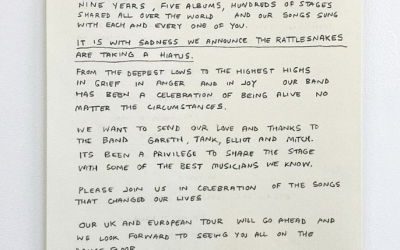 NINE YEARS, FIVE ALBUMS, HUNDREDS OF STAGES
SHARED ALL OVER THE WORLD AND OUR SONGS SUNG
WITH EACH AND EVERY ONE OF YOU.
IT IS WITH SADNESS WE ANNOUNCE THE RATTLESNAKES
ARE TAKING A HIATUS.
FROM THE DEEPEST LOWS TO THE HIGHEST HIGHS
IN GRIEF IN ANGER AND IN JOY OUR BAND
HAS BEEN A CELEBRATION OF BEING ALIVE NO
MATTER THE CIRCUMSTANCES.
WE WANT TO SEND OUR LOVE AND THANKS TO
THE BAND GARETH, TANK, ELLIOT AND MITCH.
ITS BEEN A PRIVILEGE TO SHARE THE STAGE
WITH SOME OF THE BEST MUSICIANS WE KNOW.
PLEASE JOIN US IN CELEBRATION OF THE SONGS
THAT CHANGED OUR LIVES
OUR UK AND EUROPEAN TOUR WILL GO AHEAD AND
WE LOOK FORWARD TO SEEING YOU ALL ON THE
DANCE FLOOR